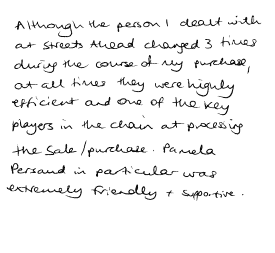 Although the person I dealt with
at Streets Ahead changed 3 times
during the course of my purchase,
at all times they were highly
efficient and one of the key
players in the chain at processing
the sale/purchase. Pamela
Persaud in particular was
extremely friendly + supportive.